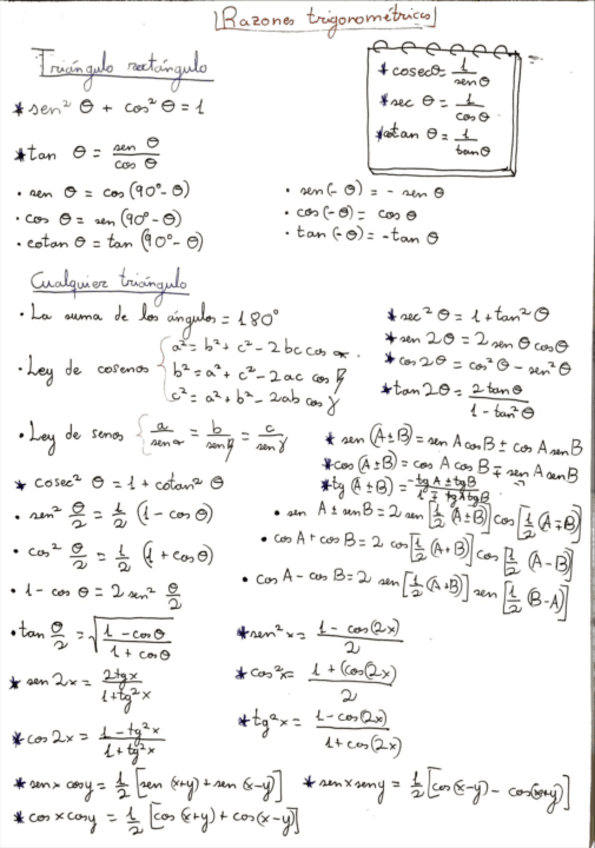 Razones trigonométricas
Triángulo rectángulo
* cosecθ = 1/senθ
* sec θ = 1/cosθ
* cotan θ = 1/tanθ
* sen² θ + cos² θ = 1
* tan θ = sen θ/cos θ
• sen θ = cos(90º-θ)
• cos θ = sen(90º-θ)
• cotan θ = tan (90º-θ)
• sen(-θ) = - sen θ
• cos(-θ) = cos θ
• tan(-θ) = -tan θ
Cualquier triángulo
• La suma de los ángulos = 180º
• Ley de cosenos { a² = b² + c² - 2bc cos α
b² = a² + c² - 2ac cos β
c² = a² + b² - 2ab cos γ
* sec² θ = 1 + tan² θ
* sen 2θ = 2 sen θ cos θ
* cos 2θ = cos² θ - sen² θ
* tan 2θ = 2 tanθ/1 - tan² θ
• Ley de senos { a/senα = b/senβ = c/senγ
* sen (A±B) = sen A cos B ± cos A sen B
* cos (A±B) = cos A cos B ∓ sen A sen B
* tg (A±B) = tgA ± tgB/1 ∓ tgA tgB
* cosec² θ = 1 + cotan² θ
• sen² θ/2 = 1/2 (1 - cos θ)
• cos² θ/2 = 1/2 (1 + cos θ)
• 1 - cos θ = 2 sen² θ/2
• tan θ/2 = √(1 - cosθ/1 + cosθ)
• sen A ± sen B = 2 sen [1/2 (A±B)] cos [1/2 (A∓B)]
• cos A + cos B = 2 cos [1/2 (A+B)] cos [1/2 (A-B)]
• cos A - cos B = 2 sen [1/2 (A+B)] sen [1/2 (B-A)]
* sen 2x = 2tgx/1+tg²x
* cos 2x = 1 - tg²x/1 + tg²x
* sen² x = 1 - cos(2x)/2
* cos² x = 1 + (cos(2x)/2
* tg² x = 1 - cos(2x)/1 + cos(2x)
* senx cosy = 1/2 [sen (x+y) + sen (x-y)]
* senx seny = 1/2 [cos(x-y) - cos(x+y)]
* cosx cosy = 1/2 [cos (x+y) + cos(x-y)]